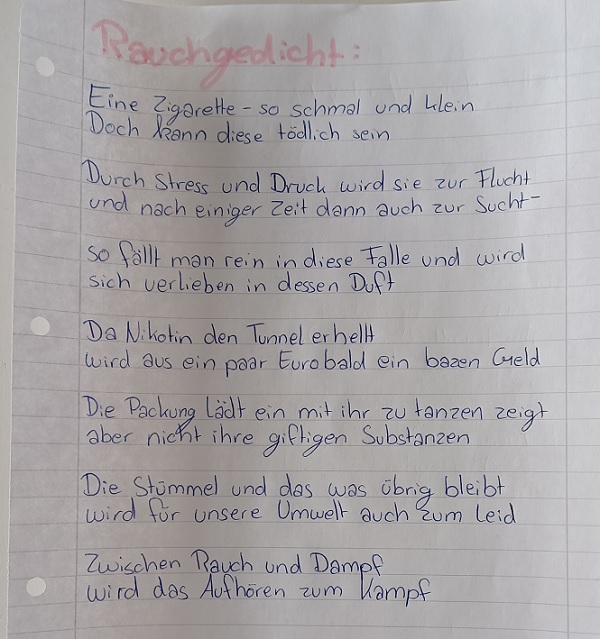 Rauchgedicht:
Eine Zigarette - so schmal und klein
Doch kann diese tödlich sein
Durch Stress und Druck wird sie zur Flucht
und nach einiger Zeit dann auch zur Sucht-
so fällt man rein in diese Falle und wird
sich verlieben in dessen Duft
Da Nikotin den Tunnel erhellt
wird aus ein paar Euro bald ein bazen Geld
Die Packung lädt ein mit ihr zu tanzen zeigt
aber nicht ihre giftigen Substanzen
Die Stümmel und das was übrig bleibt
wird für unsere Umwelt auch zum Leid
Zwischen Rauch und Dampf
wird das Aufhören zum Kampf